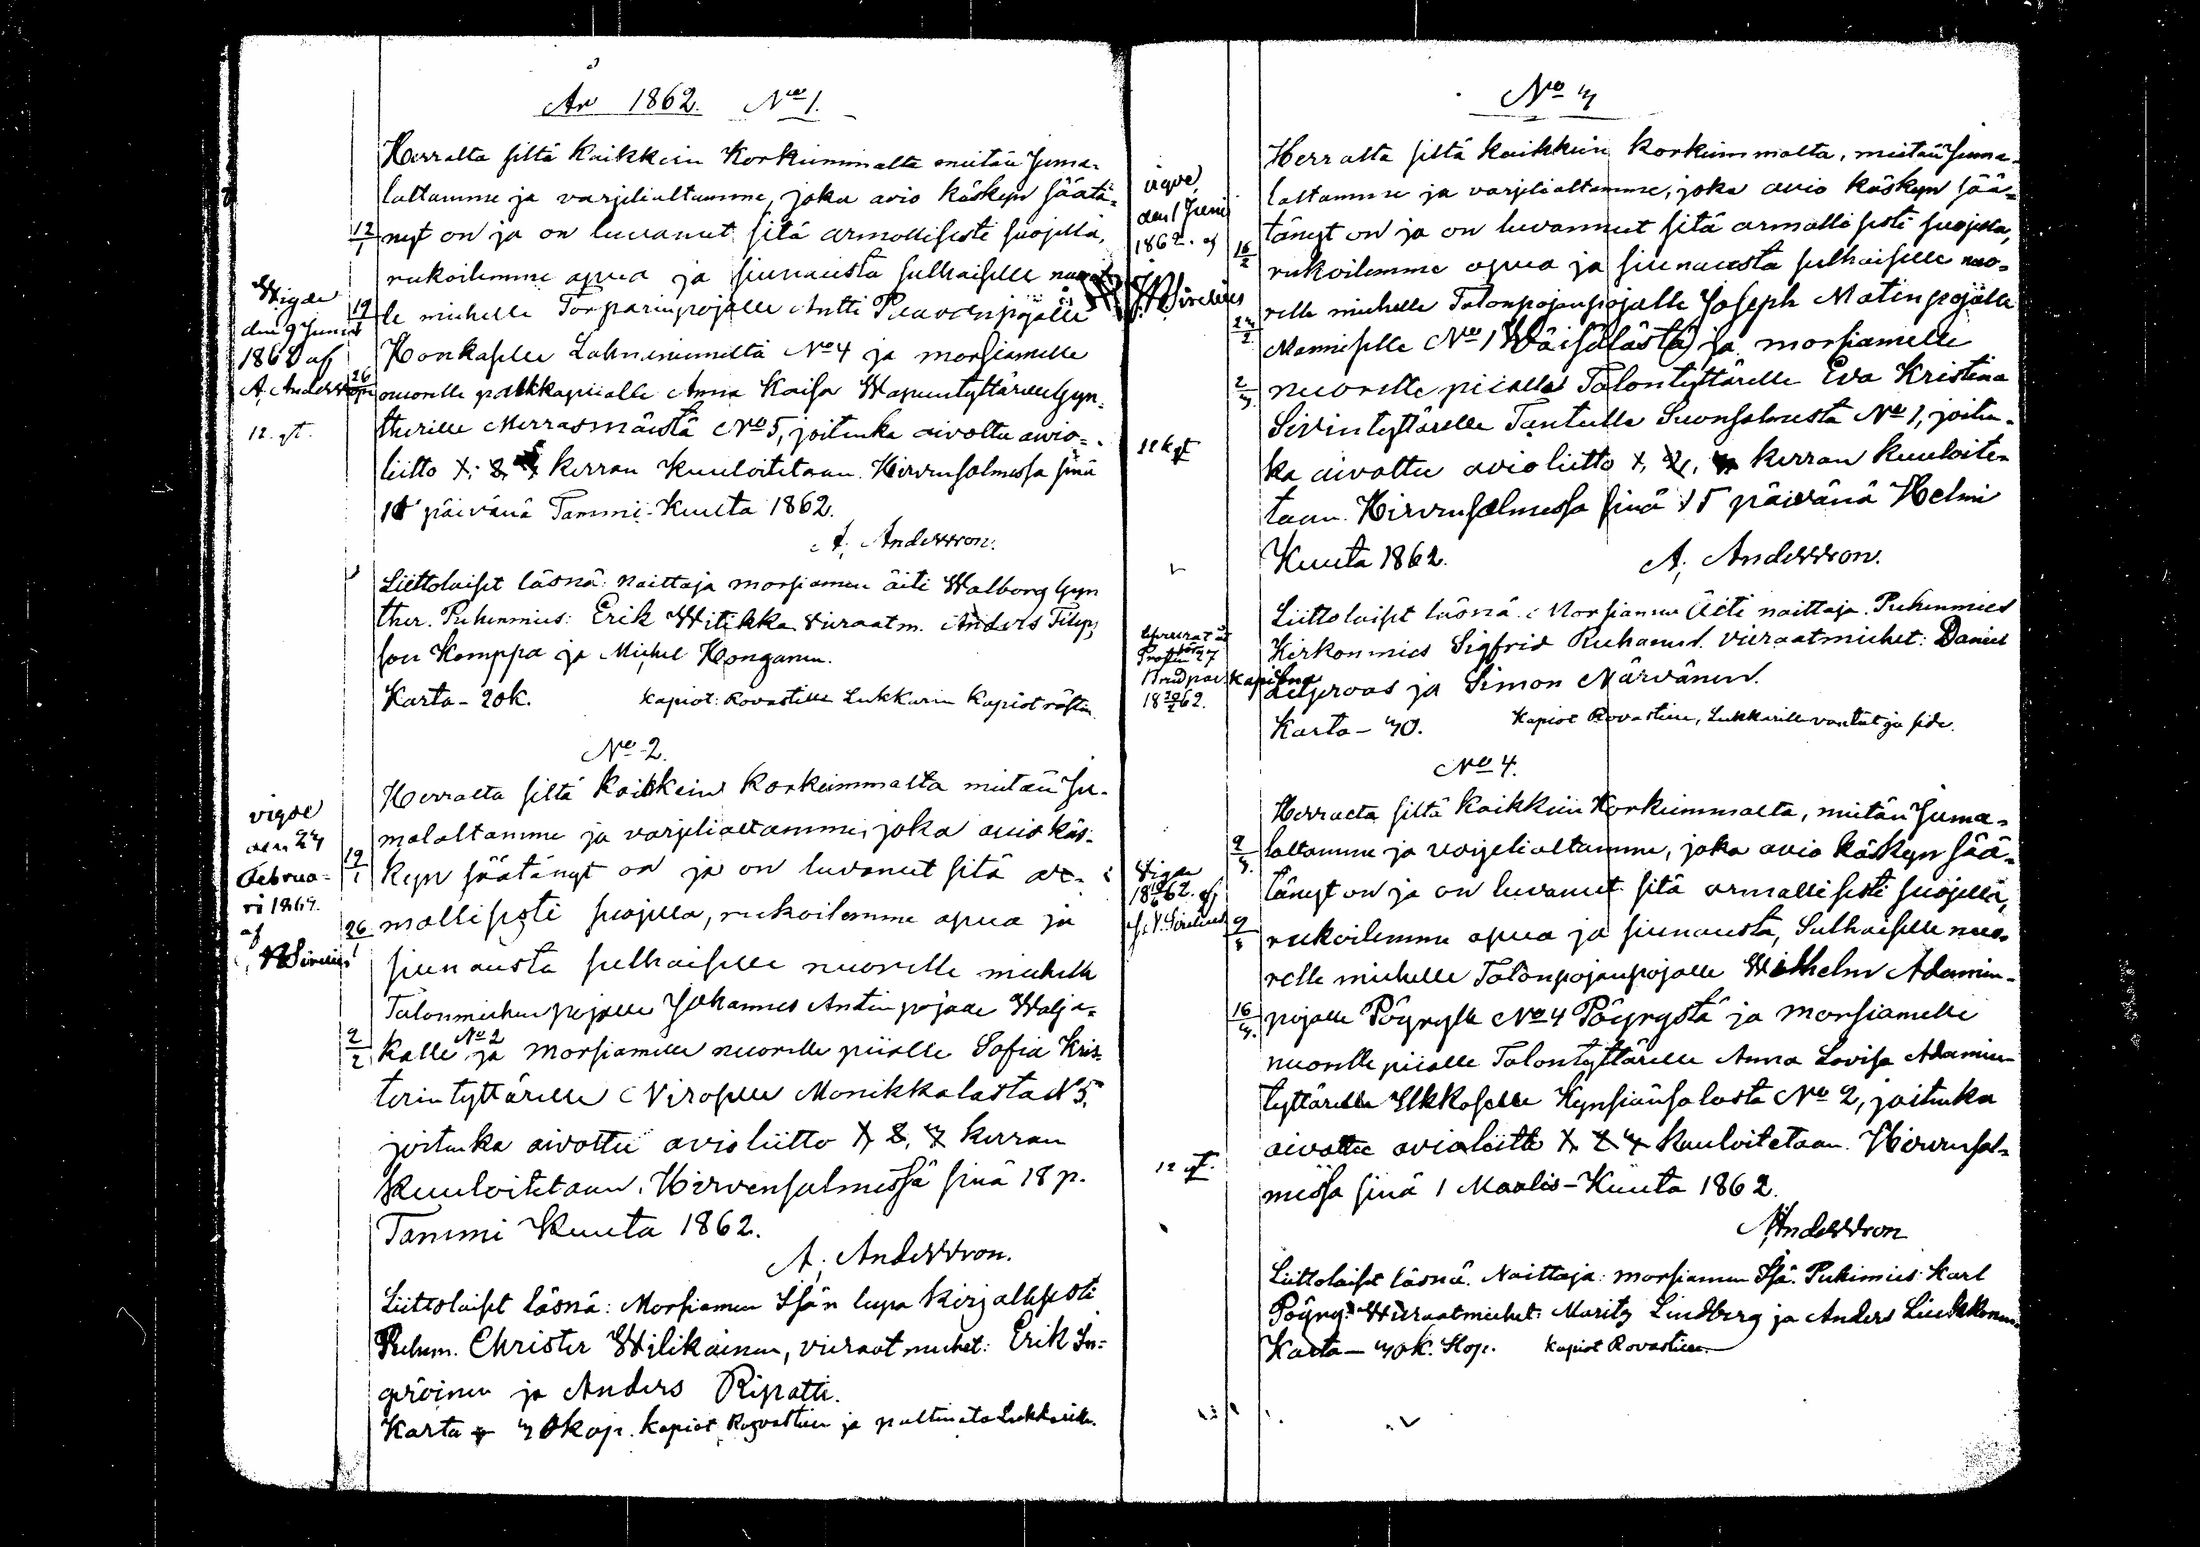 År 1862. No 1.
Herralta siltä kaikkein korkeimmalta meitän Juma-
laltamme ja varjelialtamme, joka avio käskyn säätä-
12/1 nyt on ja on luvannut sitä armollisesti suojella,
rukoilemme apua ja siunausta sulhaiselle nuorel-
Wigde
den 9 Junii
1862 af
A. Andersson
12. gt.
19/1 le miehelle Torparinpojalle Antti Paavonpojalle
Honkaselle Lahnaniemeltä No 4 ja morsiamelle
26/1 nuorelle palkkapiialle Anna Kaisa Wapuntyttärelle Gyn-
therille Merrasmäestä No 5, joitenka aivottu avio-
liitto 1. 2. 3 kerran kuuloitetaan. Hirvensalmessa sinä
11 päivänä Tammi-Kuuta 1862.
A. Andersson.
Liittolaiset läsnä: naittaja morsiamen äiti Walborg Gyn
ther. Puhenmies: Erik Witikka vieraatm. Anders Filip,
son Komppa ja Michel Honganen.
Karta - 20k. Kapiot: Rovastille Lukkarin kapiot rästin
No 2.
Herralta siltä kaikkein korkeimmalta meitän Ju-
malaltamme ja varjelialtamme, joka avio käs-
vigde
den 23
Februa-
ri 1864.
af
Sirelius
19/1 kyn säätänyt on ja on luvanut sitä ar-
26/1 mollisesti suojella, rukoilemme apua ja
siunausta sulhaiselle nuorelle miehelle
Talonmiehen pojalle Johannes Antin pojalle Walja-
2/2 kalle No 2 ja morsiamelle nuorelle piialle Sofia Kris-
terin tyttärelle Niroselle Monikkalasta No 5,
joitenka aivottu avioliitto 1, 2, 3 kerran
kuuloitetaan. Hirvensalmessä sinä 18 p.
Tammi Kuuta 1862.
A. Andersson.
Liittolaiset läsnä: Morsiamen Isän lupa kirjallisesti
Puhem. Christer Wilikainen, vieraat miehet: Erik In-
geröinen ja Anders Ripatti.
Karta 30kop. Kapiot Rovastille ja paltinata Lukkarille.
No 3
Herralta siltä kaikkein korkeimmalta, meitän Juma-
laltamme ja varjelialtamme, joka avio käskyn sää-
vigde
den 1 Junii
1862. af
Sirelius
12 k gt
tänyt on ja on luvannut sitä armollisesti suojella,
16/2 rukoilemme apua ja siunausta sulhaiselle nuo-
relle miehelle Talonpojanpojalle Joseph Matinpojalle
23/2 Manniselle No 1 Wäisälästä ja morsiamelle
2/3 nuorelle piialle Talontyttärelle Eva Kristina
Sivintyttärelle Tantulle Suonsalmesta No 1, joiten-
ka aivottu avioliitto 1, 2, 3 kerran kuuloite-
taan. Hirvensalmessa sinä 15 päivänä Helmi
Kuuta 1862. A. Andersson.
Liittolaiset läsnä. Morsiamen Äiti naittaja. Puhenmies
Kirkonmies Sigfrid Ruhanen. vieraatmiehet: Daniel
Brudpar
18 20/2 62.
ja Simon Närvänen.
Karta - 30. Kapiot Rovastille, Lukkarille vantut ja side.
No 4.
Herralta siltä kaikkein korkeimmalta, meitän Juma-
2/3 laltamme ja varjelialtamme, joka avio käskyn sää-
Vigde
1862. af
Sirelius
12 gt.
tänyt on ja on luvanut sitä armollisesti suojella,
9/3 rukoilemme apua ja siunausta, Sulhaiselle nuo-
relle miehelle Talonpojanpojalle Wilhelm Adamin-
16/3 pojalle Pöyrylle No 4 Pöyrystä ja morsiamelle
nuorelle piialle Talontyttärelle Anna Lovisa Adamin-
tyttärelle Ukkoselle Kynsiänsalosta No 2, joitenka
aivottu avioliitto 1 2 3 kuuloitetaan. Hirvensal-
messa sinä 1 Maalis-Kuuta 1862.
A. Andersson
Liittolaiset läsnä. Naittaja: morsiamen Isä. Puhemies: Karl
Pöyry. Wieraatmiehet: Moritz Lindberg ja Anders Liukkonen.
Karta - 30k. Kop. Kapiot Rovastille.